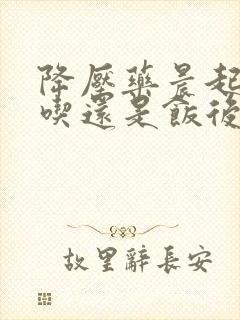 降壓藥晨起
喫還是飯後
故里辭長安